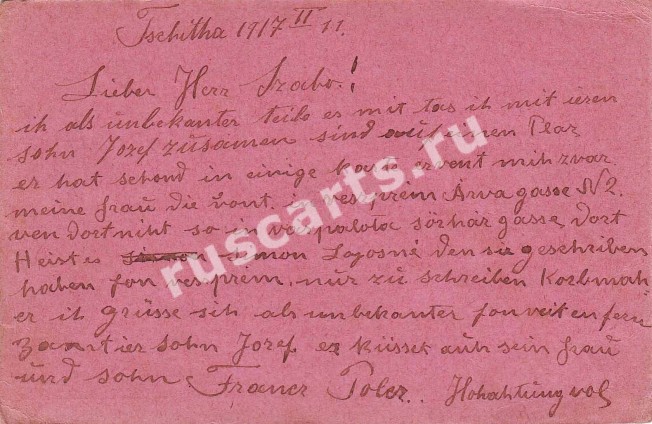 Tschitha 1917 II 11.
Lieber Herr Szabo!
ich als unbekanter teile es mit tas ich mit ieren
sohn Jozef zusamen sind auf einen Plaz
er hat schond in einige karte ervent mih zvar
meine frau die vont. in veszprém Arva gasse N 2.
ven dort niht so in varpalota sörház gasse dort
Heist es Simon Lajosné den sie geschriben
haben fon veszprém. nur zu schreiben
er ih grüsse sih als unbekanter fon veit en fern
sohn Jozef er küsset auh sein frau
und sohn Francz Polcz. Hohahtung vol
ruscarts.ru